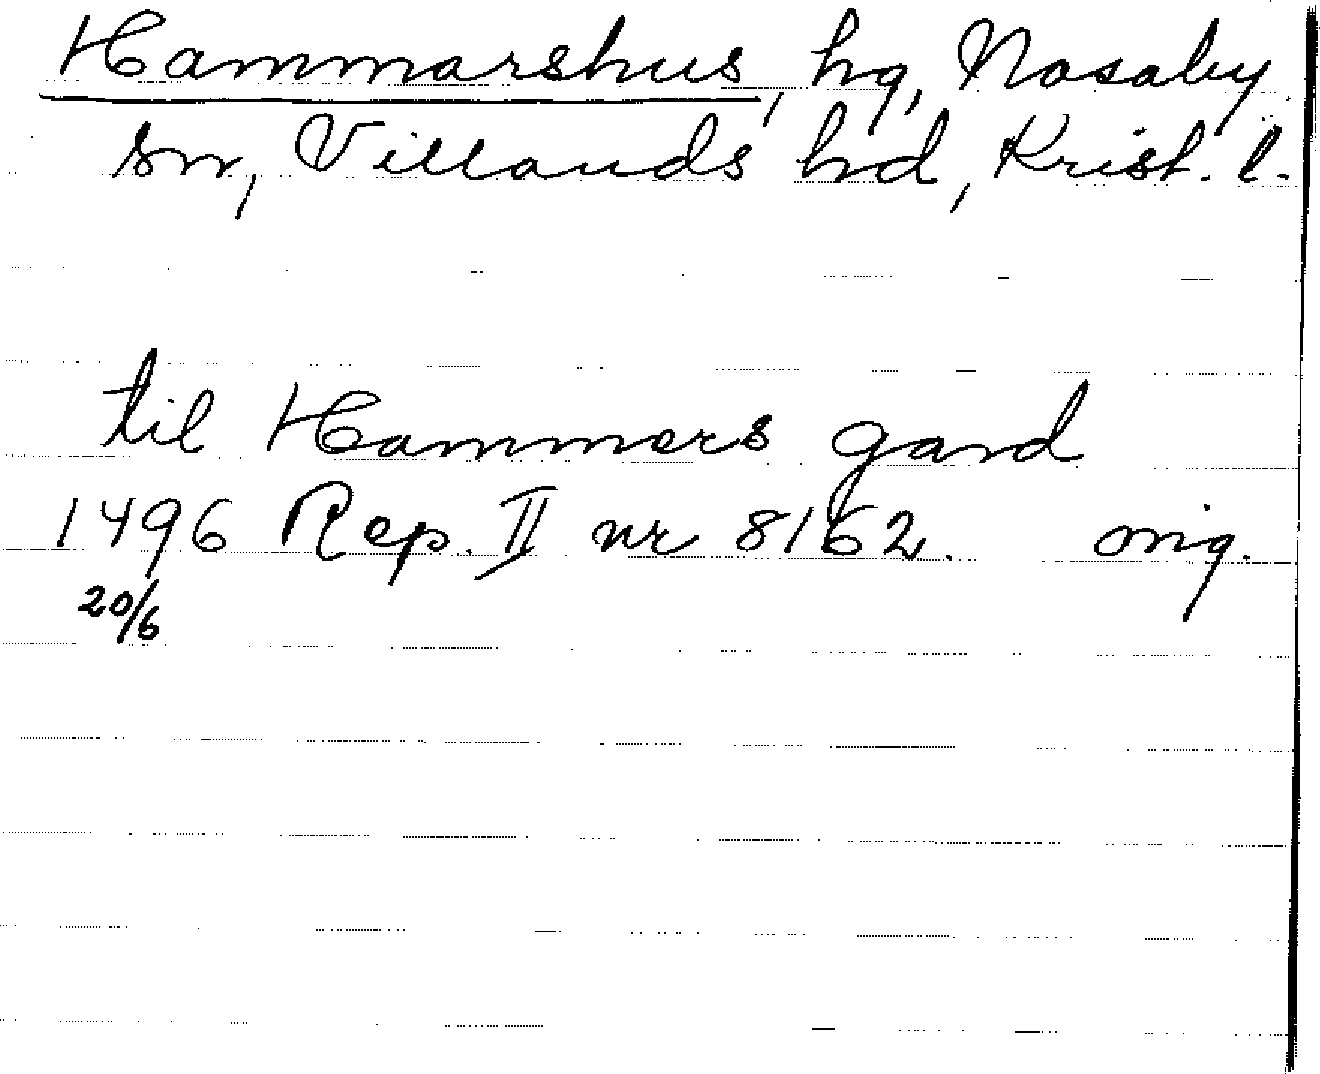 Hammarshus, hg, Nosaby
sn, Villands hd, Krist. l.
til Hammers gard
1496 Rep. II nr 8162. orig.
20/6